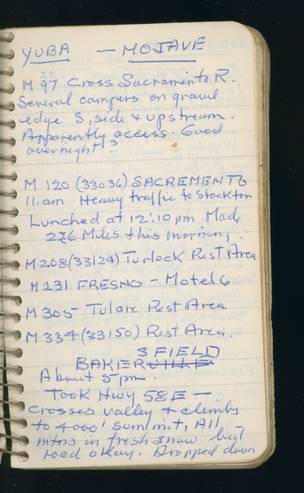 YUBA — MOJAVE
M 97 Cross Sacramento R.
Several campers on gravel
edge S, side & upstream.
Apparently access. Good
overnight?
M 120 (33036) SACREMENTO
11:am Heavy traffic to Stockton
Lunched at 12:10 pm Made
276 Miles this morning.
M 208 (33124) Turlock Rest Area
M 231 FRESNO - Motel 6
M 305 Tulare Rest Area
M 334 (33150) Rest Area.
SFIELD
BAKER
About 5 pm.
Took Hwy 58E —
crosses valley & climbs
to 4000' summit, All
mtns in fresh snow but
road okay. Dropped down